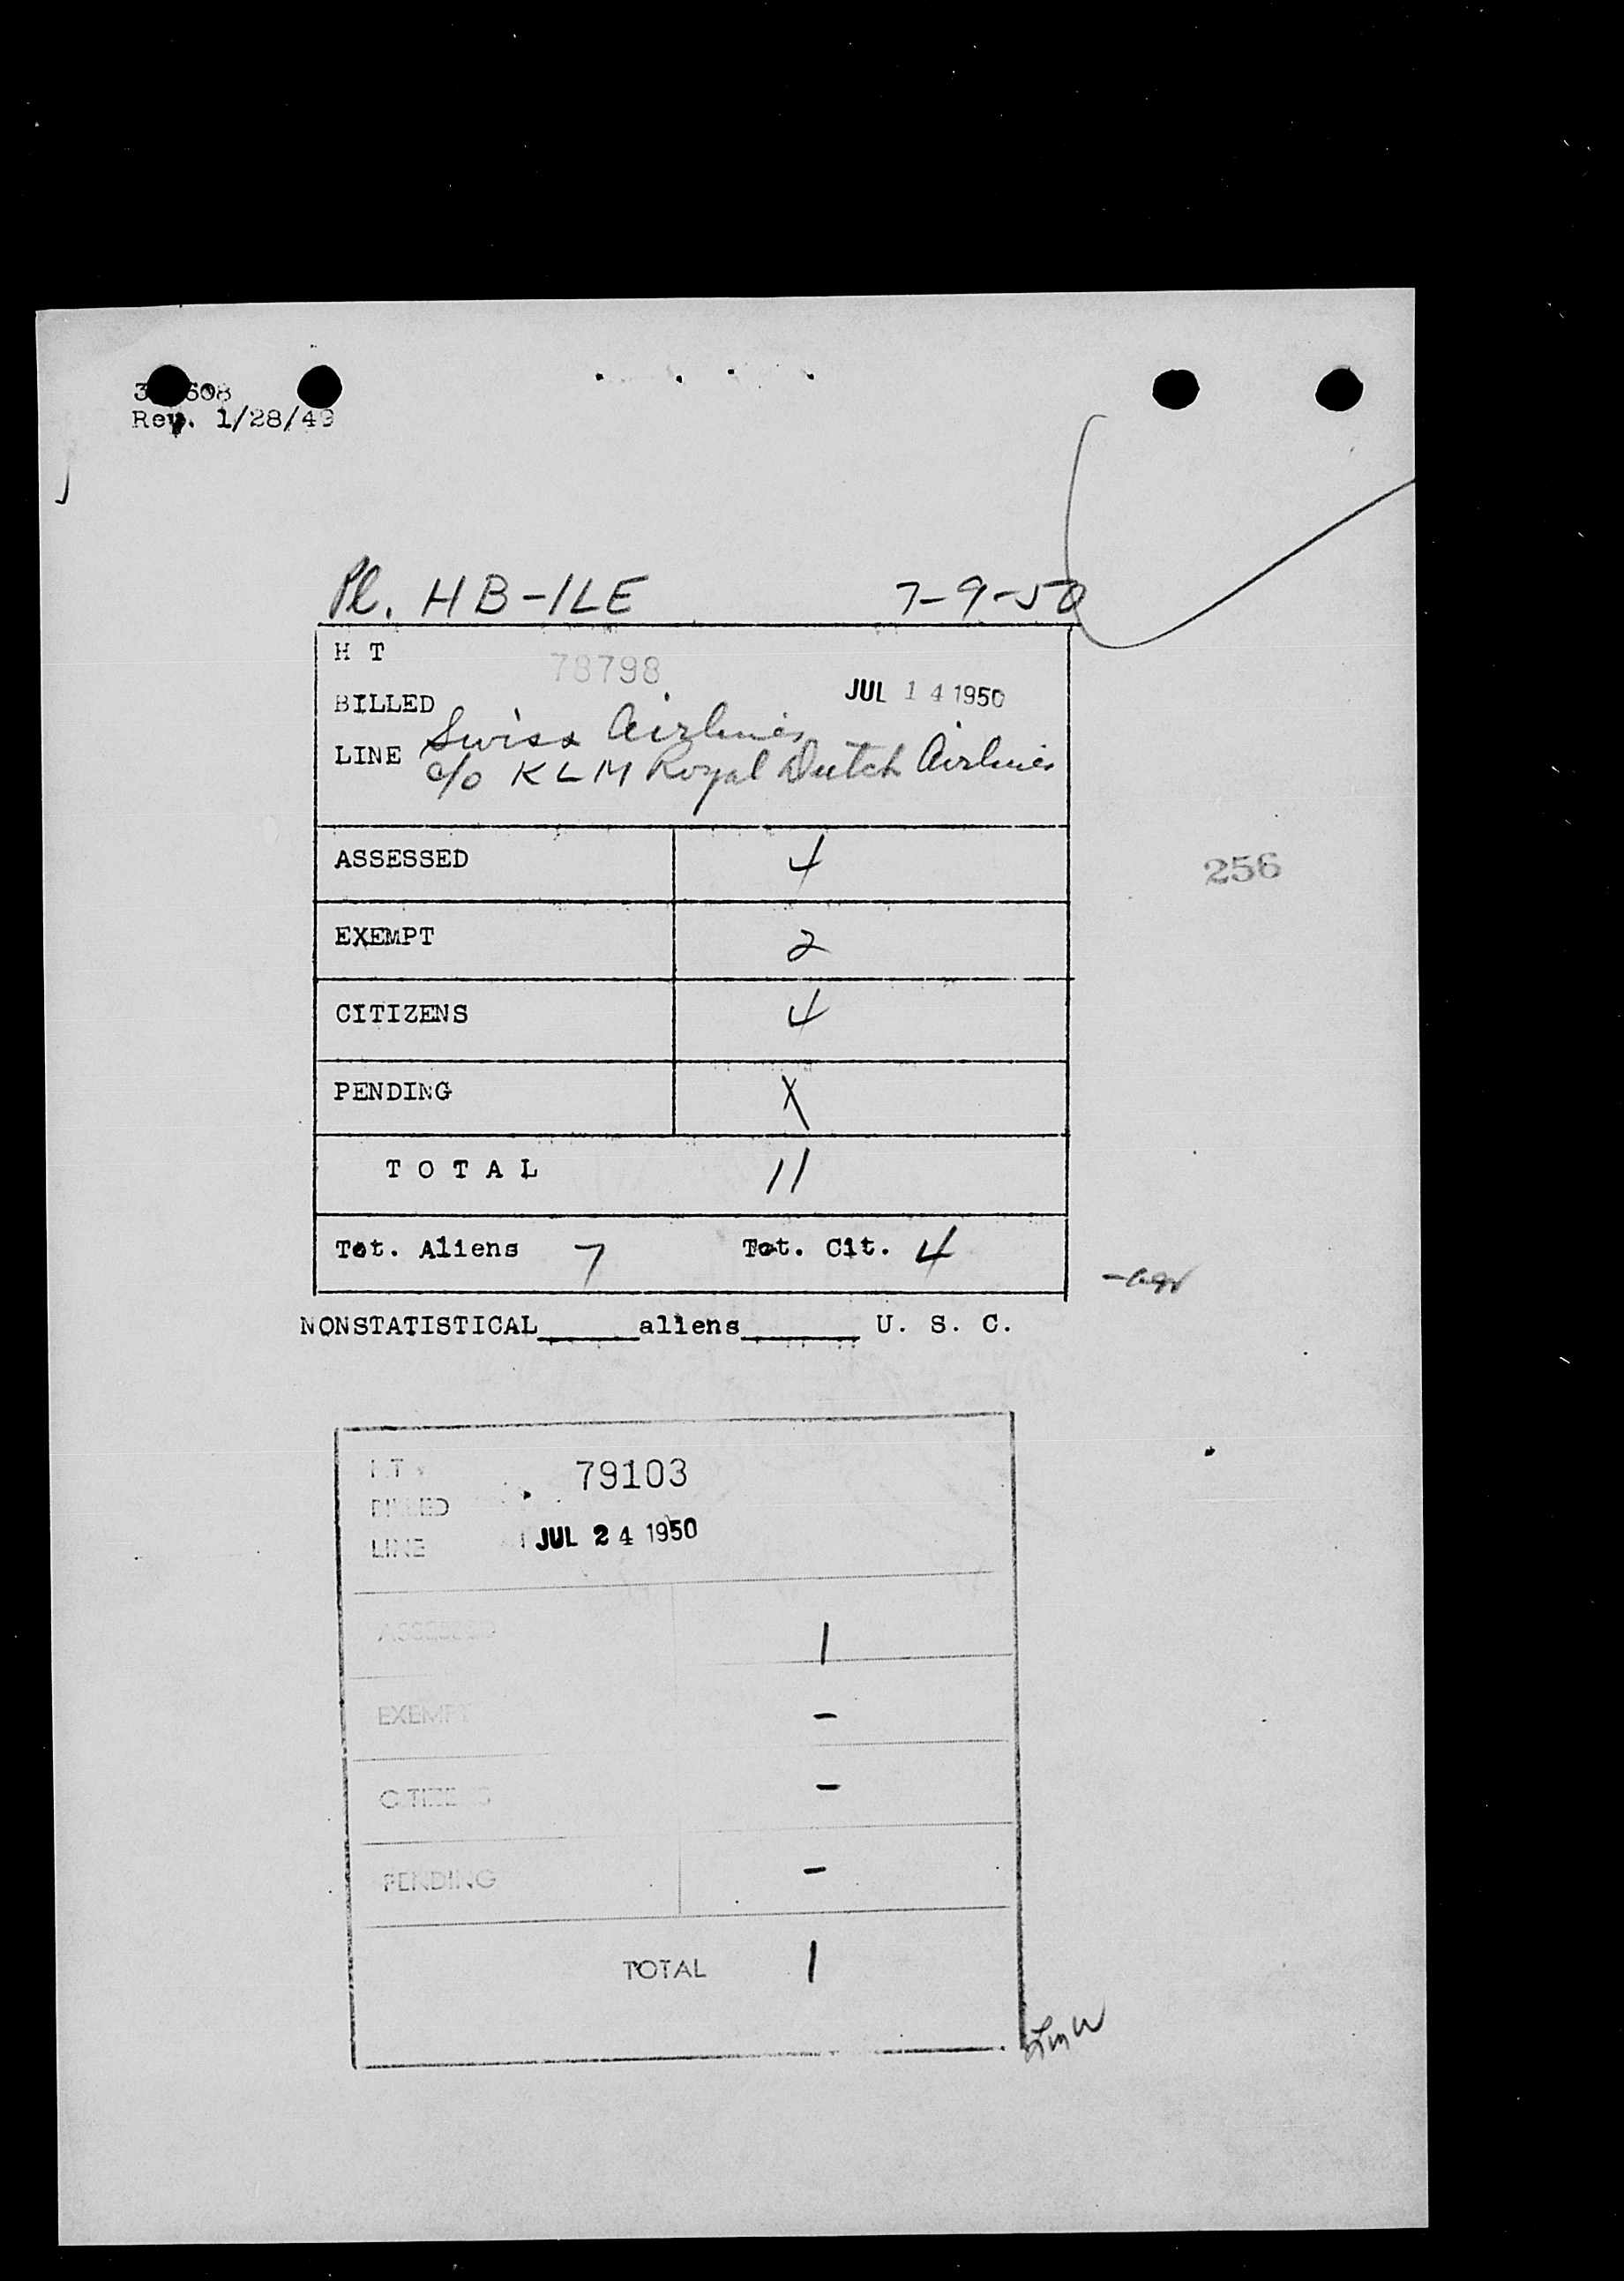 608
Rev. 1/28/49
Pl. HB-ILE 7-9-50
H T 78798
BILLED JUL 14 1950
LINE Swiss Airlines
c/o KLM Royal Dutch Airlines
ASSESSED 4
256
EXEMPT 2
CITIZENS 4
PENDING X
TOTAL 11
Tot. Aliens 7 Tot. Cit. 4
NONSTATISTICAL_____aliens______ U. S. C.
H T 79103
BILLED
LINE JUL 24 1950
ASSESSED 1
EXEMPT -
CITIZENS -
PENDING -
TOTAL 1